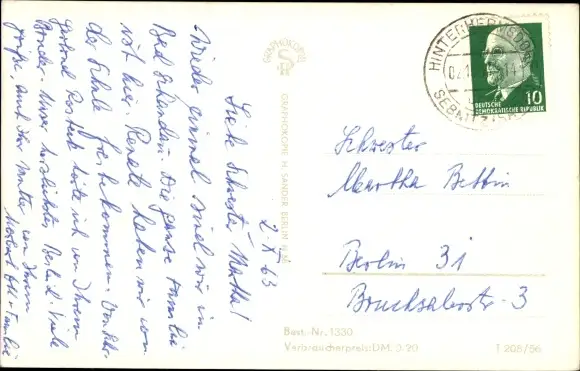 2. X. 63
Liebe Schwester Martha!
Wieder einmal sind wir in
Bad Schandau. Die ganze Familie
ist hier. Renate haben wir von
der Schule frei bekommen. Von
Gertrud Rostock hörte ich von Ihrem
Berlin. Viele
Grüße, auch Ihr Mutter von Ihrem
+ Familie
GRAPHOKOPIE
GRAPHOKOPIE H. SANDER BERLIN N.M.
HINTERHERMSDORF
SEBNITZ
DEUTSCHE
DEMOKRATISCHE REPUBLIK
10
Schwester
Martha Bettin
Berlin 31
Bruchsalerstr. 3
Best. Nr. 1330
Verbraucherpreis: DM. 0.20
T 208/56